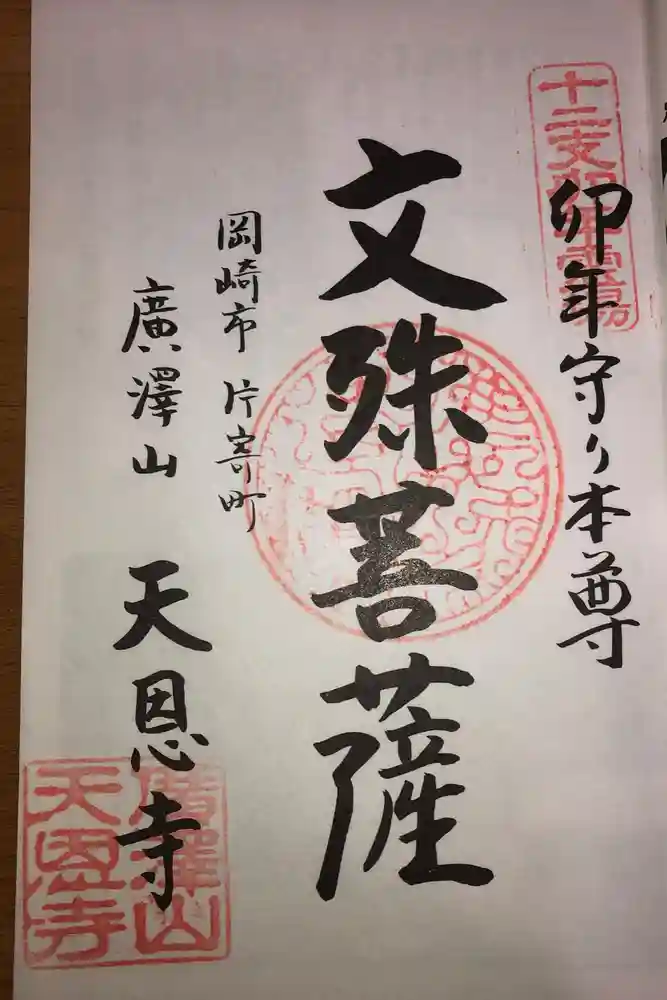 十二支御年霊場
卯年守り本尊
文殊菩薩
岡崎市 片寄町
廣澤山 天恩寺
廣澤山
天恩寺